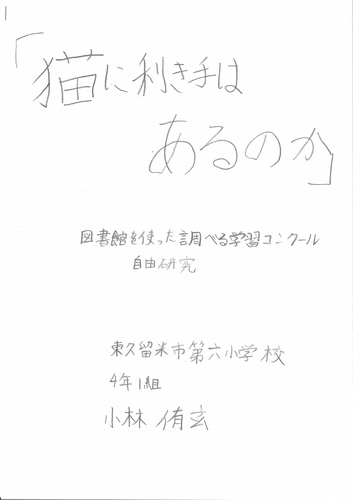 1
「猫に利き手は
あるのか」
図書館を使った調べる学習コンクール
自由研究
東久留米市第六小学校
4年1組
小林 侑玄